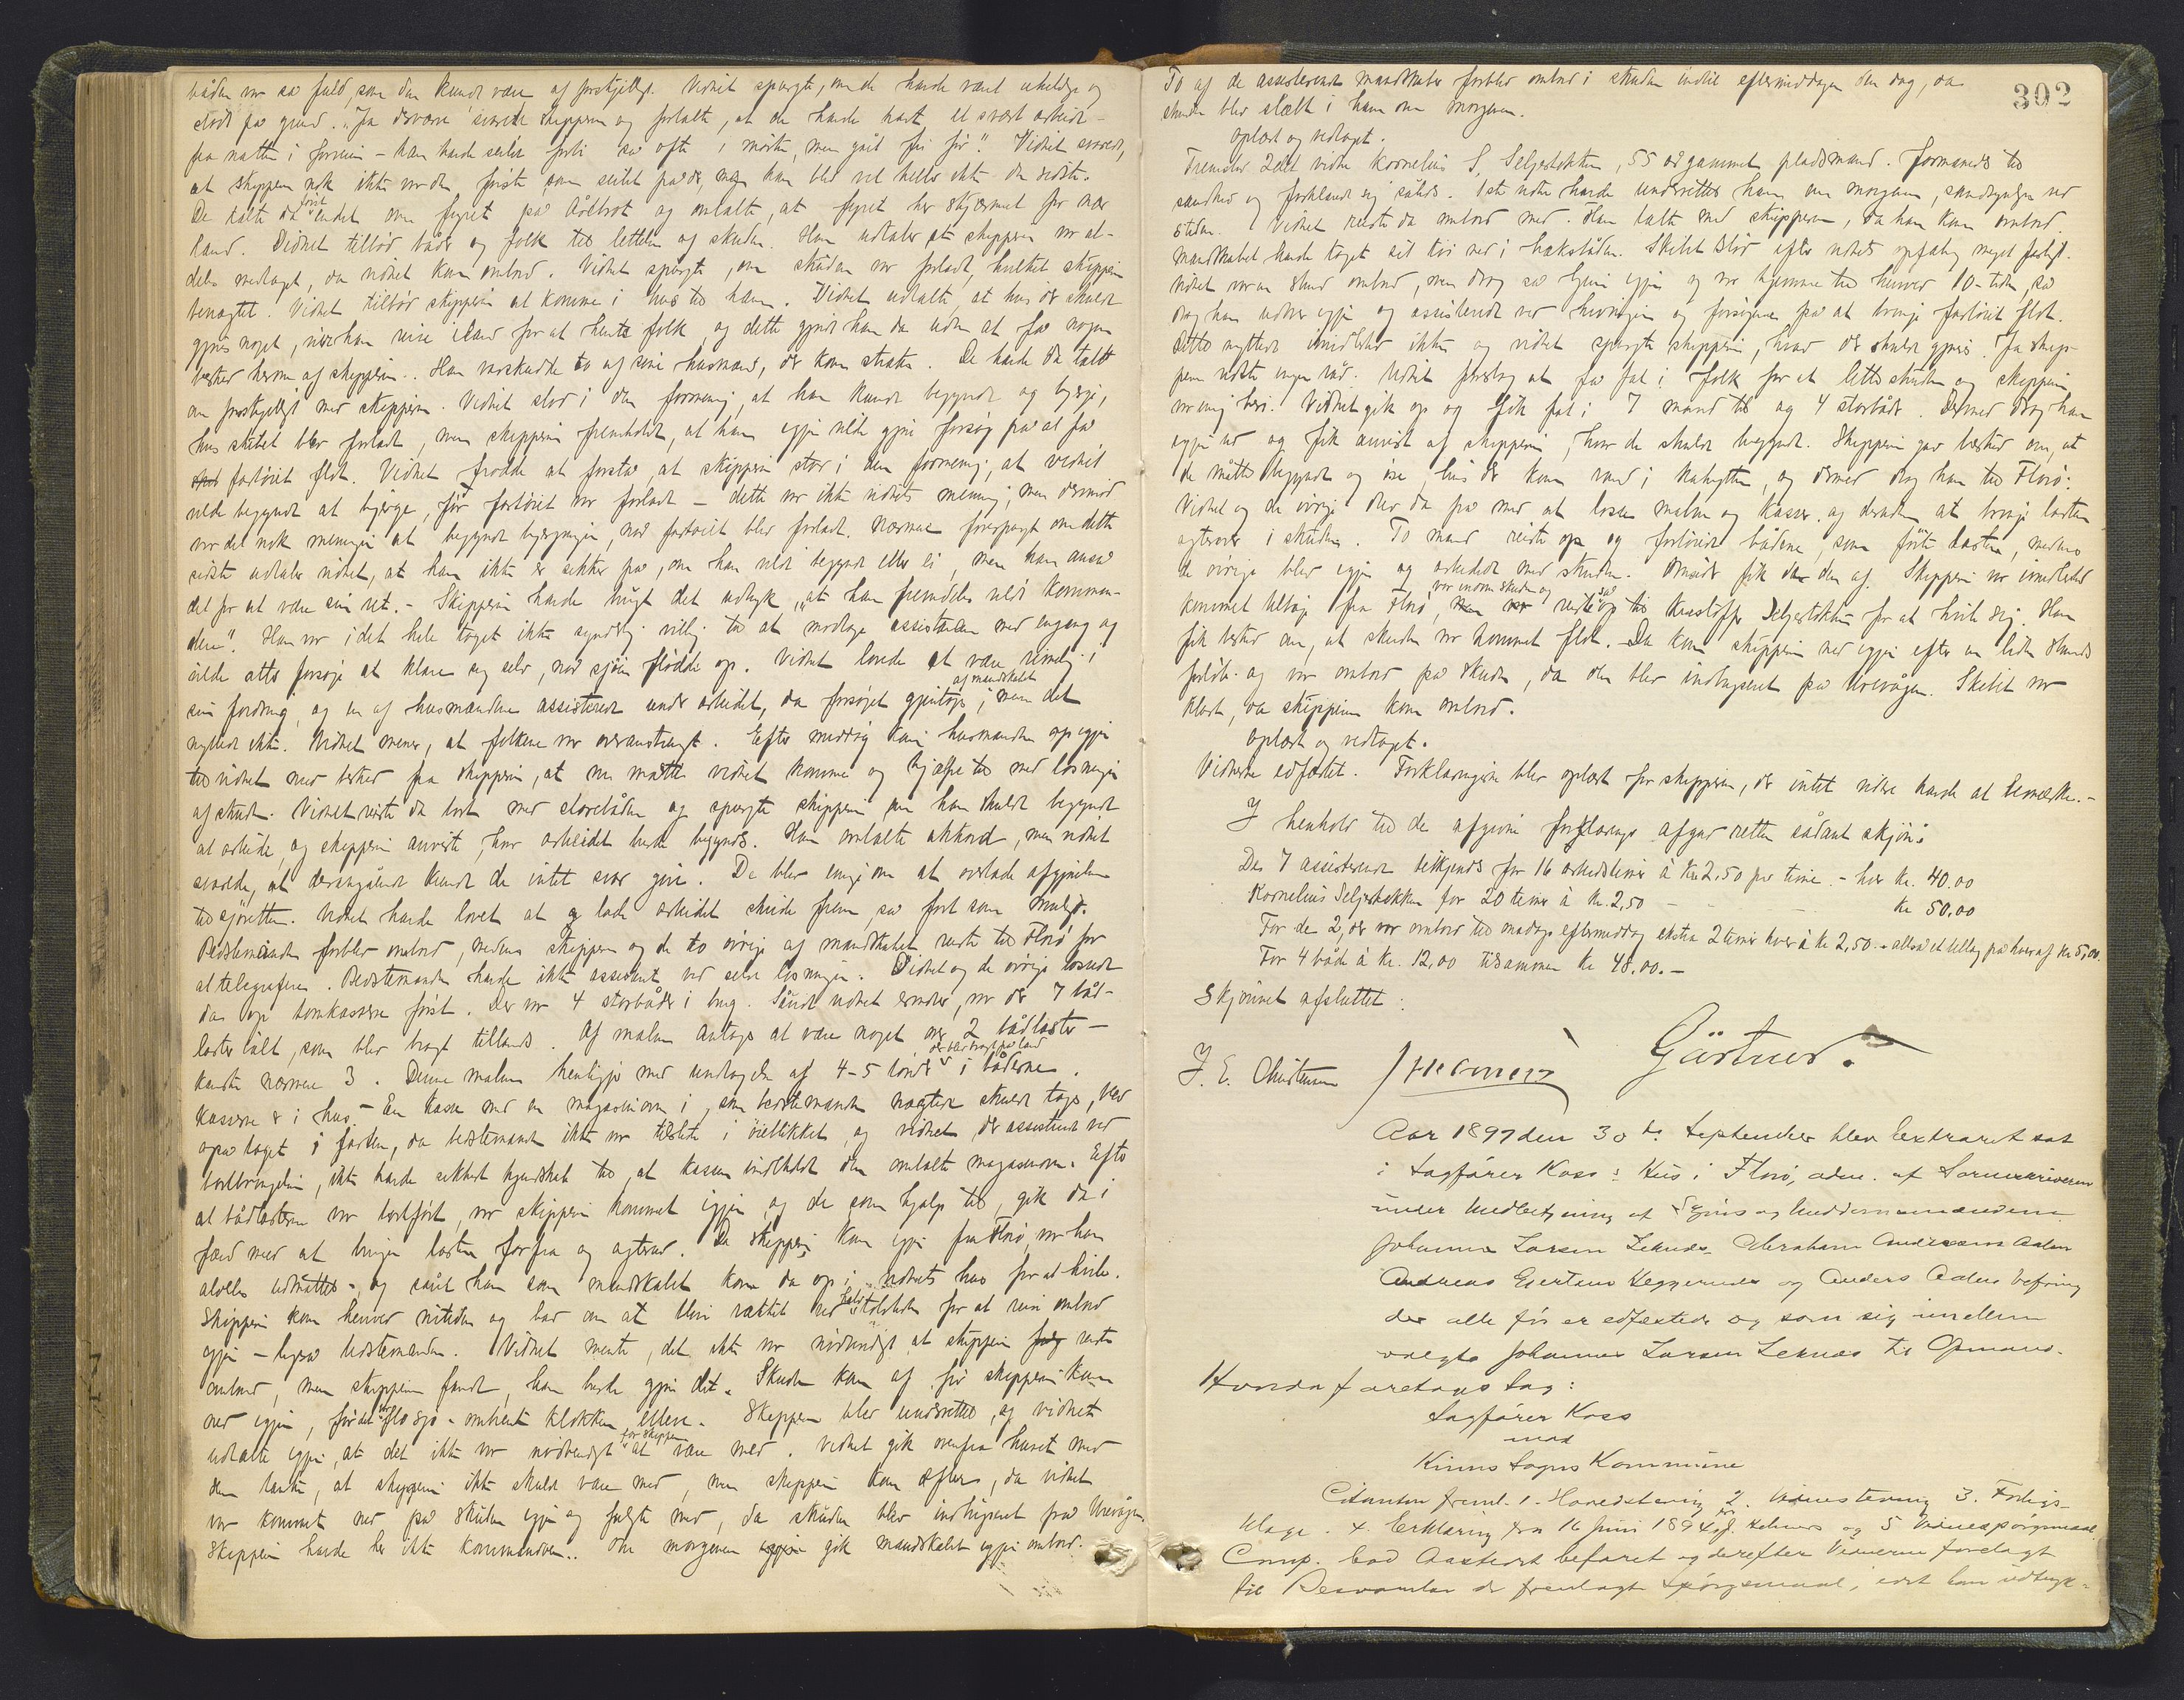 båden var så fuld, som den kunde være af forskjelligt. Vidnet spurgte, om de havde været uheldige og
stødt på grund. "Ja desværre" svarede skipperen og fortalte, at de havde havt et svært arbeide
fra natten i forveien - han havde seilet forbi så ofte i mørke, men gåt fri før". Vidnet svarede,
at skipperen nok ikke var den første som seilet på der, men han blev vel heller ikke den sidste.
De talte da först endel om fyret på og omtalte, at fyret her skjærmet for nær
land. Vidnet tilbød både og folk til lettelse af skuden. Han udtaler at skipperen var al-
deles medtaget, da vidnet kom ombord. Vidnet spurgte, om skuden var forladt, hvilket skipperen
benægtet. Vidnet tilbød skipperen at komme i hus til ham. Vidnet udtalte, at hvis der skulde
gjøres noget, måtte han reise iland for at hente folk, og dette gjorde han da uden at få nogen
besked herom af skipperen. Han varskudde to af sine husmænd, der kom straks. De havde da talt
om forskjelligt med skipperen. Vidnet stod i den formening, at han kunde begynde og bjerge,
hvis skibet blev forladt, men skipperen fremholdt, at han igjen vilde gjøre forsøg på at få
fartøiet flot. Vidnet trodde at forstå, at skipperen stod i den formening, at vidnet
vilde begynde at bjerge, før fartøiet var forladt - dette var ikke vidnets mening; men derimod
var det nok meningen at begynde bjergningen, når fartøiet blev forladt. Nærmere forespurgt om dette
sidste udtaler vidnet, at han ikke er sikker på, om han vilde begynde eller ei, men han anså
det for at være sin ret. - Skipperen havde brugt det udtryk, "at han fremdeles vilde komman-
dere". Han var i det hele taget ikke synderlig villig til at modtage assistance med engang og
vilde atter forsøge at klare sig selv, når sjøen flødde op. Vidnet lovede at være rimelig i
sin fordring, og en af husmændene assisterede under arbeidet, da forsøget gjentoges af mandskabet; men det
nyttede ikke. Vidnet mener, at folkene var overanstrengt. Efter middag kom husmanden op igjen
til vidnet med besked fra skipperen, at nu måtte vidnet komme og hjælpe til med losningen
af skuden. Vidnet reiste da bort med storebåden og spurgte skipperen om han skulde begynde
at arbeide, og skipperen anviste, hvor arbeidet burde begyndes. Han omtalte akkord, men vidnet
svarede, at derangående kunde de intet svar give. De blev enige om at overlade afgjørelsen
til sjøretten. Vidnet havde lovet at lade arbeidet skride frem, så fort som muligt.
Bedstemanden forblev ombord, medens skipperen og de to øvrige af mandskabet reiste til Florø for
at telegrafere. Bedstemanden havde ikke assisteret ved selve losningen. Vidnet og de øvrige lossede
da op tomkasserne først. Der var 4 storbåder i brug. Såvidt vidnet erindrer, var der 7 båd-
laster ialt, som blev bragt tillands. Af malm antages at være noget over 2 bådlaster -
kanske nærmere 3. Denne malm henligger med undtagelse af 4-5 tønder der blev bragt på land i båderne.
Kasserne er i hus. - En kasse med en magasinovn i, som bedstemanden nægtede skulde tages, blev
også taget i farten, da bedstemanden ikke var tilstede i øieblikket, og vidnet, der assisterede ved
bortbringelsen, ikke havde sikkert kjendskab til, at kassen indeholdt den omtalte magasinovn. Efter
at bådlasterne var bortført, var skipperen kommet igjen, og de som hjalp til, gik da i
færd med at bringe lasten forfra og agterud. Da skipperen kom igjen fra Florø, var han
aldeles udmattet, og såvel han som mandskabet kom da op i vidnets hus for at hvile.
Skipperen kom henved nitiden og bad om at blive vækket ved halv tolvtiden for at reise ombord
igjen - ligeså bedstemanden. Vidnet mente, det ikke var nødvendigt at skipperen reiste
ombord, men skipperen fandt, han burde gjøre det. Skuden kom af før skipperen kom
ned igjen, før det var flo sjø - omtrent klokken elleve. Skipperen blev underrettet, og vidnet
udtalte igjen, at det ikke var nødvendigt for skipperen at være med. Vidnet gik ovenfra huset med
den tanke, at skipperen ikke skulde være med, men skipperen kom efter, da vidnet
var kommet ned på skuden igjen og fulgte med, da skuden blev indbugseret fra Urevågen.
Skipperen havde her ikke kommandoen. Om morgenen gik mandskabet igjen ombord.
302
To af de assisterende mandskaber forblev ombord i skuden indtil eftermiddagen den dag, da
skuden blev slæbt i havn om morgenen.
Oplæst og vedtaget.
Fremstod 2det vidne Kornelius S. Seljestokken, 55 år gammel pladsmand. Formanedes til
sandhed og forklarede sig således. 1ste vidne havde underrettet ham om morgenen,
Vidnet reiste da ombord med. Han talte med skipperen, da han kom ombord.
Mandskabet havde taget sit tøi ned i hækbåden. Skibet stod efter vidnets opfatning meget farligt.
Vidnet var en stund ombord, men drog så hjem igjen og var hjemme til henved 10-tiden, så
drog han udover igjen og assisterede ved hivningen og forsøgene på at bringe fartøiet flot.
Dette nyttede imidlertid ikke og vidnet spurgte skipperen, hvad der skulde gjøres. Ja skip-
peren vidste ingen råd. Vidnet foreslog at få fat i folk for at lette skuden og skipperen
var enig heri. Vidnet gik op og fik fat i 7 mand til og 4 storbåder. Dermed drog han
igjen ud og fik anvist af skipperen, hvor de skulde begynde. Skipperen gav besked om, at
de måtte begynde og øse, hvis der kom vand i kahytten, og dermed drog han til Florø.
Vidnet og de øvrige drev da på med at losse malm og kasser og derefter at bringe lasten
agterover i skuden. To mand reiste op og fortøiede bådene, som førte lasten, medens
de øvrige blev igjen og arbeidede med skuden. Omsider fik de den af. Skipperen var imidlertid
kommet tilbage fra Florø, var indom skuden og reiste så op til Kristoffer Seljestokken for at hvile sig. Han
fik besked om, at skuden var kommet flot. Da kom skipperen ned igjen efter en liden stunds
forløb og var ombord på skuden, da den blev indbugseret på Urevågen. Skibet var
klart, da skipperen kom ombord.
Oplæst og vedtaget.
Vidnerne edfæstet. Forklaringerne blev oplæst for skipperen, der intet videre havde at bemærke. -
I henhold til de afgivne forklaringer afgav retten sådant skjøn:
De 7 assisterende tilkjendes for 16 arbeidstimer à Kr. 2,50 per time. - hver Kr. 40.00
Kornelius Seljestokken for 20 timer à kr. 2,50 - Kr 50,00
For de 2, der var ombord til næste dags eftermiddag ekstra 2 timer hver à kr 2,50 - altså et tillæg på hver af kr 5,00.
For 4 både à kr. 12,00 tilsammen kr 48,00. -
Skjønnet afsluttet:
J. E. Christensen Gärtner.
Aar 1897 den 30te September blev Extraret sat
i Sagfører Koss's Hus i Florø, adm. af Sorenskriveren
under Medbetjening af Syns og Meddomsmændene
Johannes Larsen Leknes, Abraham Andersen Aalen
Andreas Gjertsen Heggernes og Anders Aalen
der alle før er edfæstede og som sig imellem
valgte Johannes Larsen Leknes til Opmand.
Hvorda foretages Sag:
Sagfører Koss
mod
Kinns Sogns Kommune
Citanten freml. 1. Hovedstævning 2. Vidnestevning 3. Forligs-
klage. 4. Erklæring fra 16 Juni 1894 og 5 Vidnespørgsmaal.
Comp. bad Aastedet befaret og derefter Vidnerne forelagt
til Besvarelse de fremlagte Spørgsmaal, idet han udtryk-